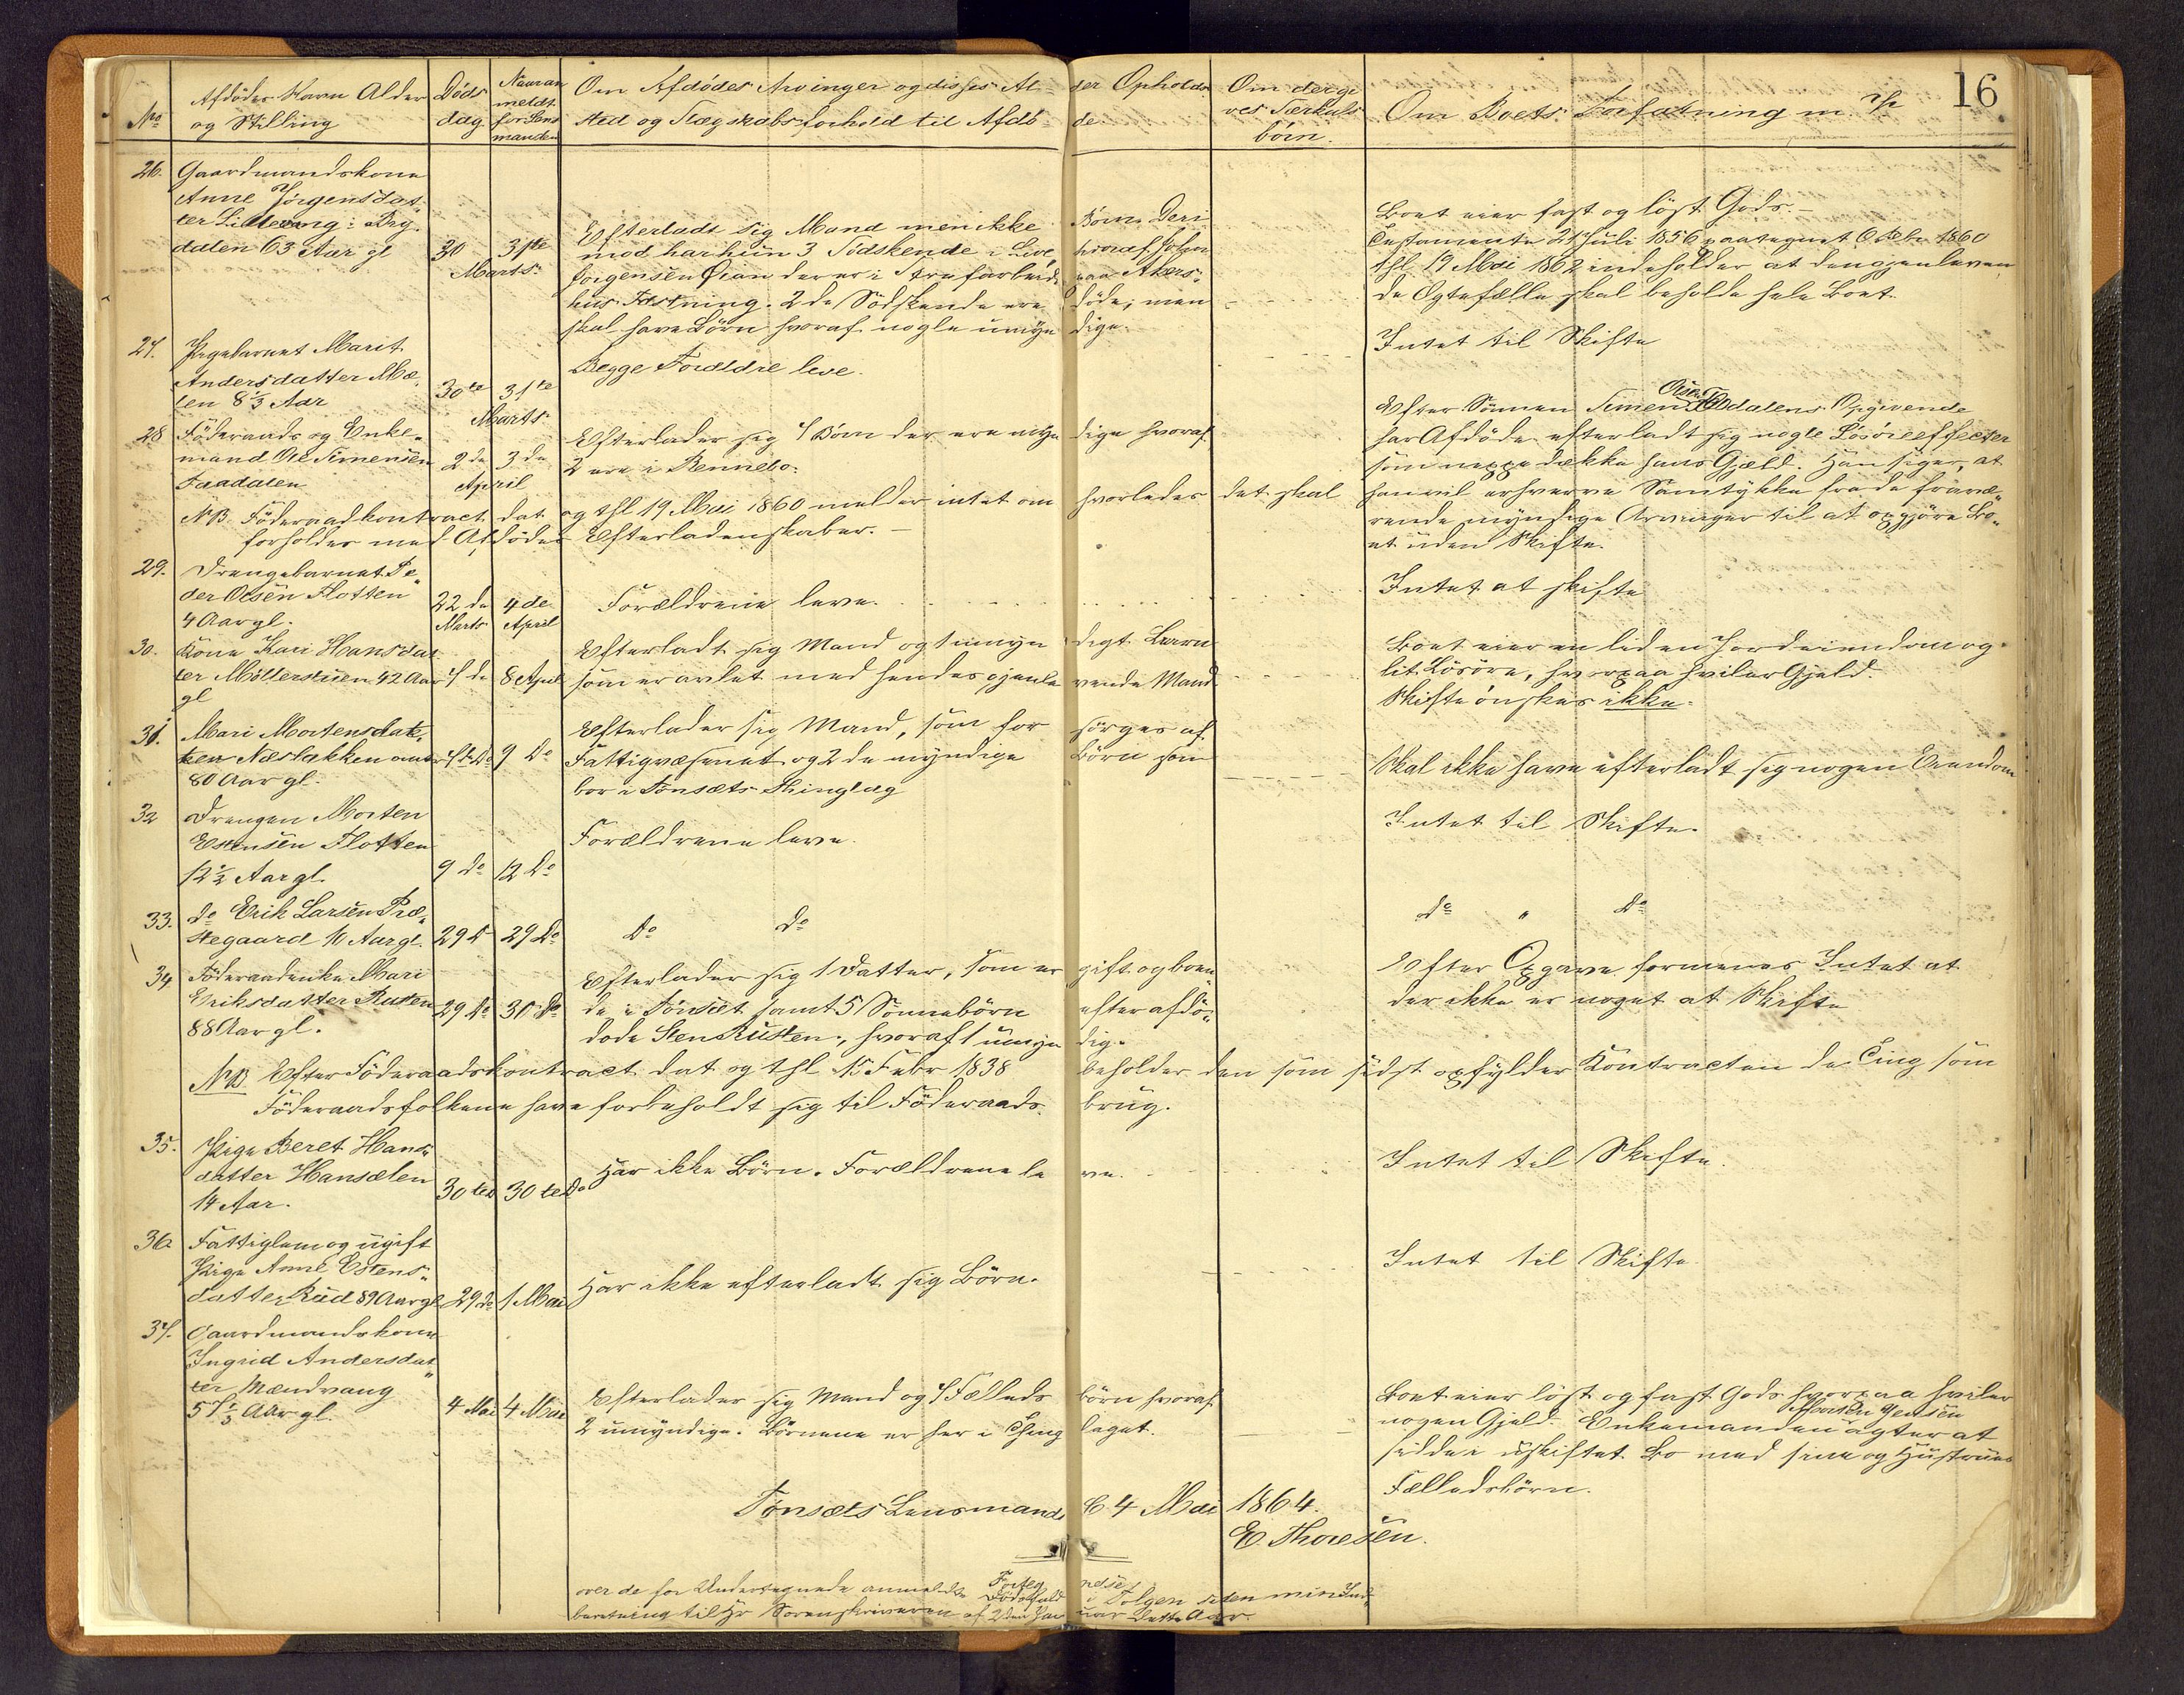 16
No
Afdödes Navn Alder
og Stilling
Döds
dag.
Naar an
meldt
for Lens
manden
Om Afdödes Arvinger og disses Al-
sted og Slægskabsforhold til Afdö-
der Opholds
de.
Om der gi
ves Særkuls
börn.
Om Boets Forfatning m. V.
26. Gaardmandskone
Anne Jörgensdat
ter Lillevang: Byg.
dalen 63 Aar gl
30 31te
Marts
Efterladt sig Mand men ikke Börn. Deri
mod har hun 3 Södskende i Live, hvoraf Johan
Jörgensen Öian der er i Strafarbeide paa Akers-
hus Fæstning. 2 de Södskende ere döde, men
skal have Börn hvoraf nogle umyn dige.
Boet eier fast og löst Gods.-
Testamente 21 Juli 1856 paategnet 6 Febr 1860
thl. 19 Mai 1862 indeholder at den gjenleven
de Ægtefælle skal beholde hele Boet.
27. Pigebarnet Marit
Andersdatter Mæ-
len 8 1/3 Aar
30te 31te
Marts
Begge Forældre leve.
Intet til Skifte
28 Föderaads og Enke-
mand Ole Simensen
Faadalen
2 de 3 de
April
Efterlader sig 4 Börn der ere myn dige hvoraf
2 ere i Rennebo.
NB. Föderaadkontract dat og thl 19 Mai 1860 melder intet om hvorledes det skal
forholdes med Afdödes Efterladenskaber.-
Efter Sönnen Simen Olsen Faadalens Opgivende
har Afdöde efterladt sig nogle Lösöreeffecter
som neppe dække hans Gjæld. Han siger, at
han vil erhverve Samtykke fra de fravæ-
rende myndige Arvinger til at opgjöre Bo-
et uden Skifte.
29. Drengebarnet Pe-
der Olsen Flotten
4 Aar gl.
22 de
Marts
4 de
April
Forældrene leve.
Intet at skifte
30. Kone Kari Hansdat
ter Möllerstuen 42 Aar
gl
4 de 8 April
Efterladt sig Mand og 1 umyn digt Barn
som er avlet med hendes gjenle vende Mand
Boet eier en liden Jordeiendom og
lit Lösöre, hvorpaa hviler Gjæld.
Skifte önskes ikke.
31. Mari Mortensdat-
ter Næsbakken omtr
80 Aar gl.
4 de Do 9 Do
Efterlader sig Mand, som for sörges af
Fattigvæsenet og 2 de myndige Börn som
bor i Tönsæts Thinglag
Skal ikke have efterladt sig nogen Eiendom
32 Drengen Morten
Estensen Flotten
12 1/2 Aar gl.
9 Do 12 Do
Forældrene leve.
Intet til Skifte.
33. do Erik Larsen Præ-
stegaard 10 Aar gl.
29 D 29 Do
Do Do
do " Do
34 Föderaadenke Mari
Eriksdatter Rusten
88 Aar gl.
29 Do 30 Do
Efterlader sig 1 Datter, som er gift og boen
de i Tönsæt samt 5 Sönnebörn efter afdö-
döde Sten Rusten, hvoraf 1 umyn dig.
Efter Opgave formenes Intet at
der ikke er noget at Skifte
NB Efter Föderaadskontract dat og thl 15 Febr 1838 beholder den som sidst opfylder Kontracten de Ting som
Föderaadsfolkene have forbeholdt sig til Föderaads brug.
35. Pige Beret Hans-
datter Hansælen
14 Aar.
30 te D 30 te Do
Har ikke Börn. Forældrene le ve.
Intet til Skifte.
36. Fattiglem og ugift
Pige Anne Estens-
datter Rud 89 Aar gl
29 Do 1 Mai
Har ikke efterladt sig Börn.
Intet til Skifte
37. Gaardmandskone
Ingrid Andersdat
ter Mændvang
57 1/3 Aar gl.
4 Mai 4 Mai
Efterlader sig Mand og 4 Fælleds börn hvoraf
2 umyndige. Börnene er her i Thing laget.
Boet eier löst og fast Gods hvorpaa hviler
nogen Gjæld. Enkemanden Morten Jensen agter at
sidde i uskiftet Bo med sine og Hustrues
Fælledsbörn.
Tönsæts Lensmands C. 4 Mai 1864.
E. Thoresen.
Forteg nelse
over de for Undertegnede anmeldte Dödsfald i Tolgen siden min Ind-
beretning til Hr Sorenskriveren af 2den Jan uar dette Aar.